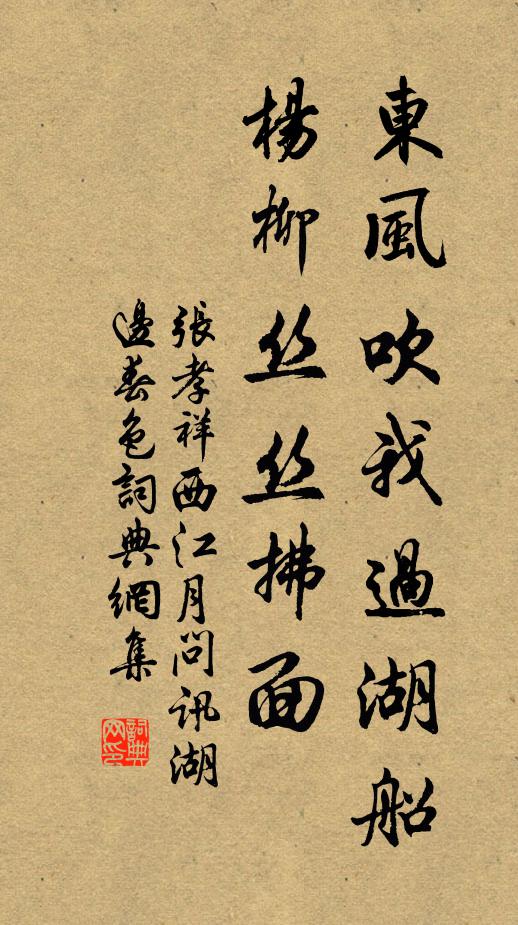 東風吹我過湖船
楊柳丝丝拂面
張孝祥西江月問訊湖
邊春色詞典網集
詞典网印